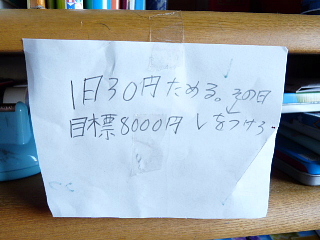 1日30円ためる。その日
目標8000円 レをつけろ